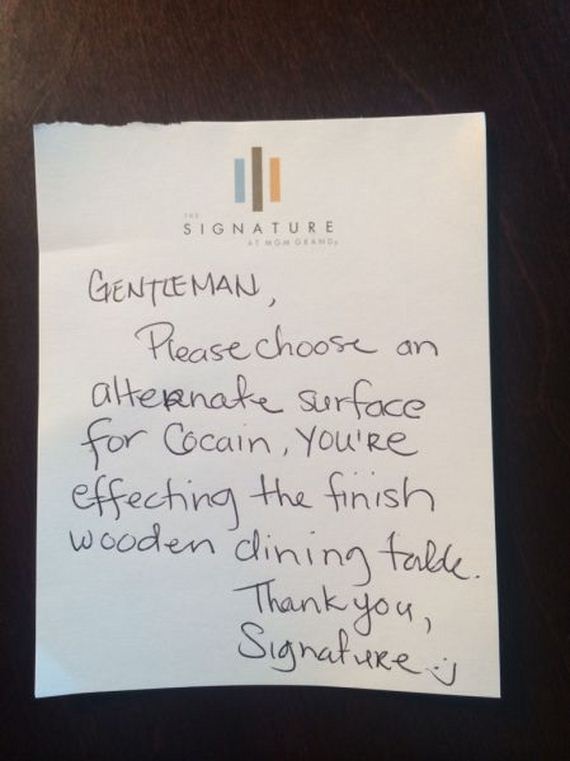 THE
SIGNATURE
AT MGM GRAND®
GENTLEMAN,
Please choose an
alternate surface
for Cocain, you're
effecting the finish
wooden dining table.
Thank you,
Signature :)